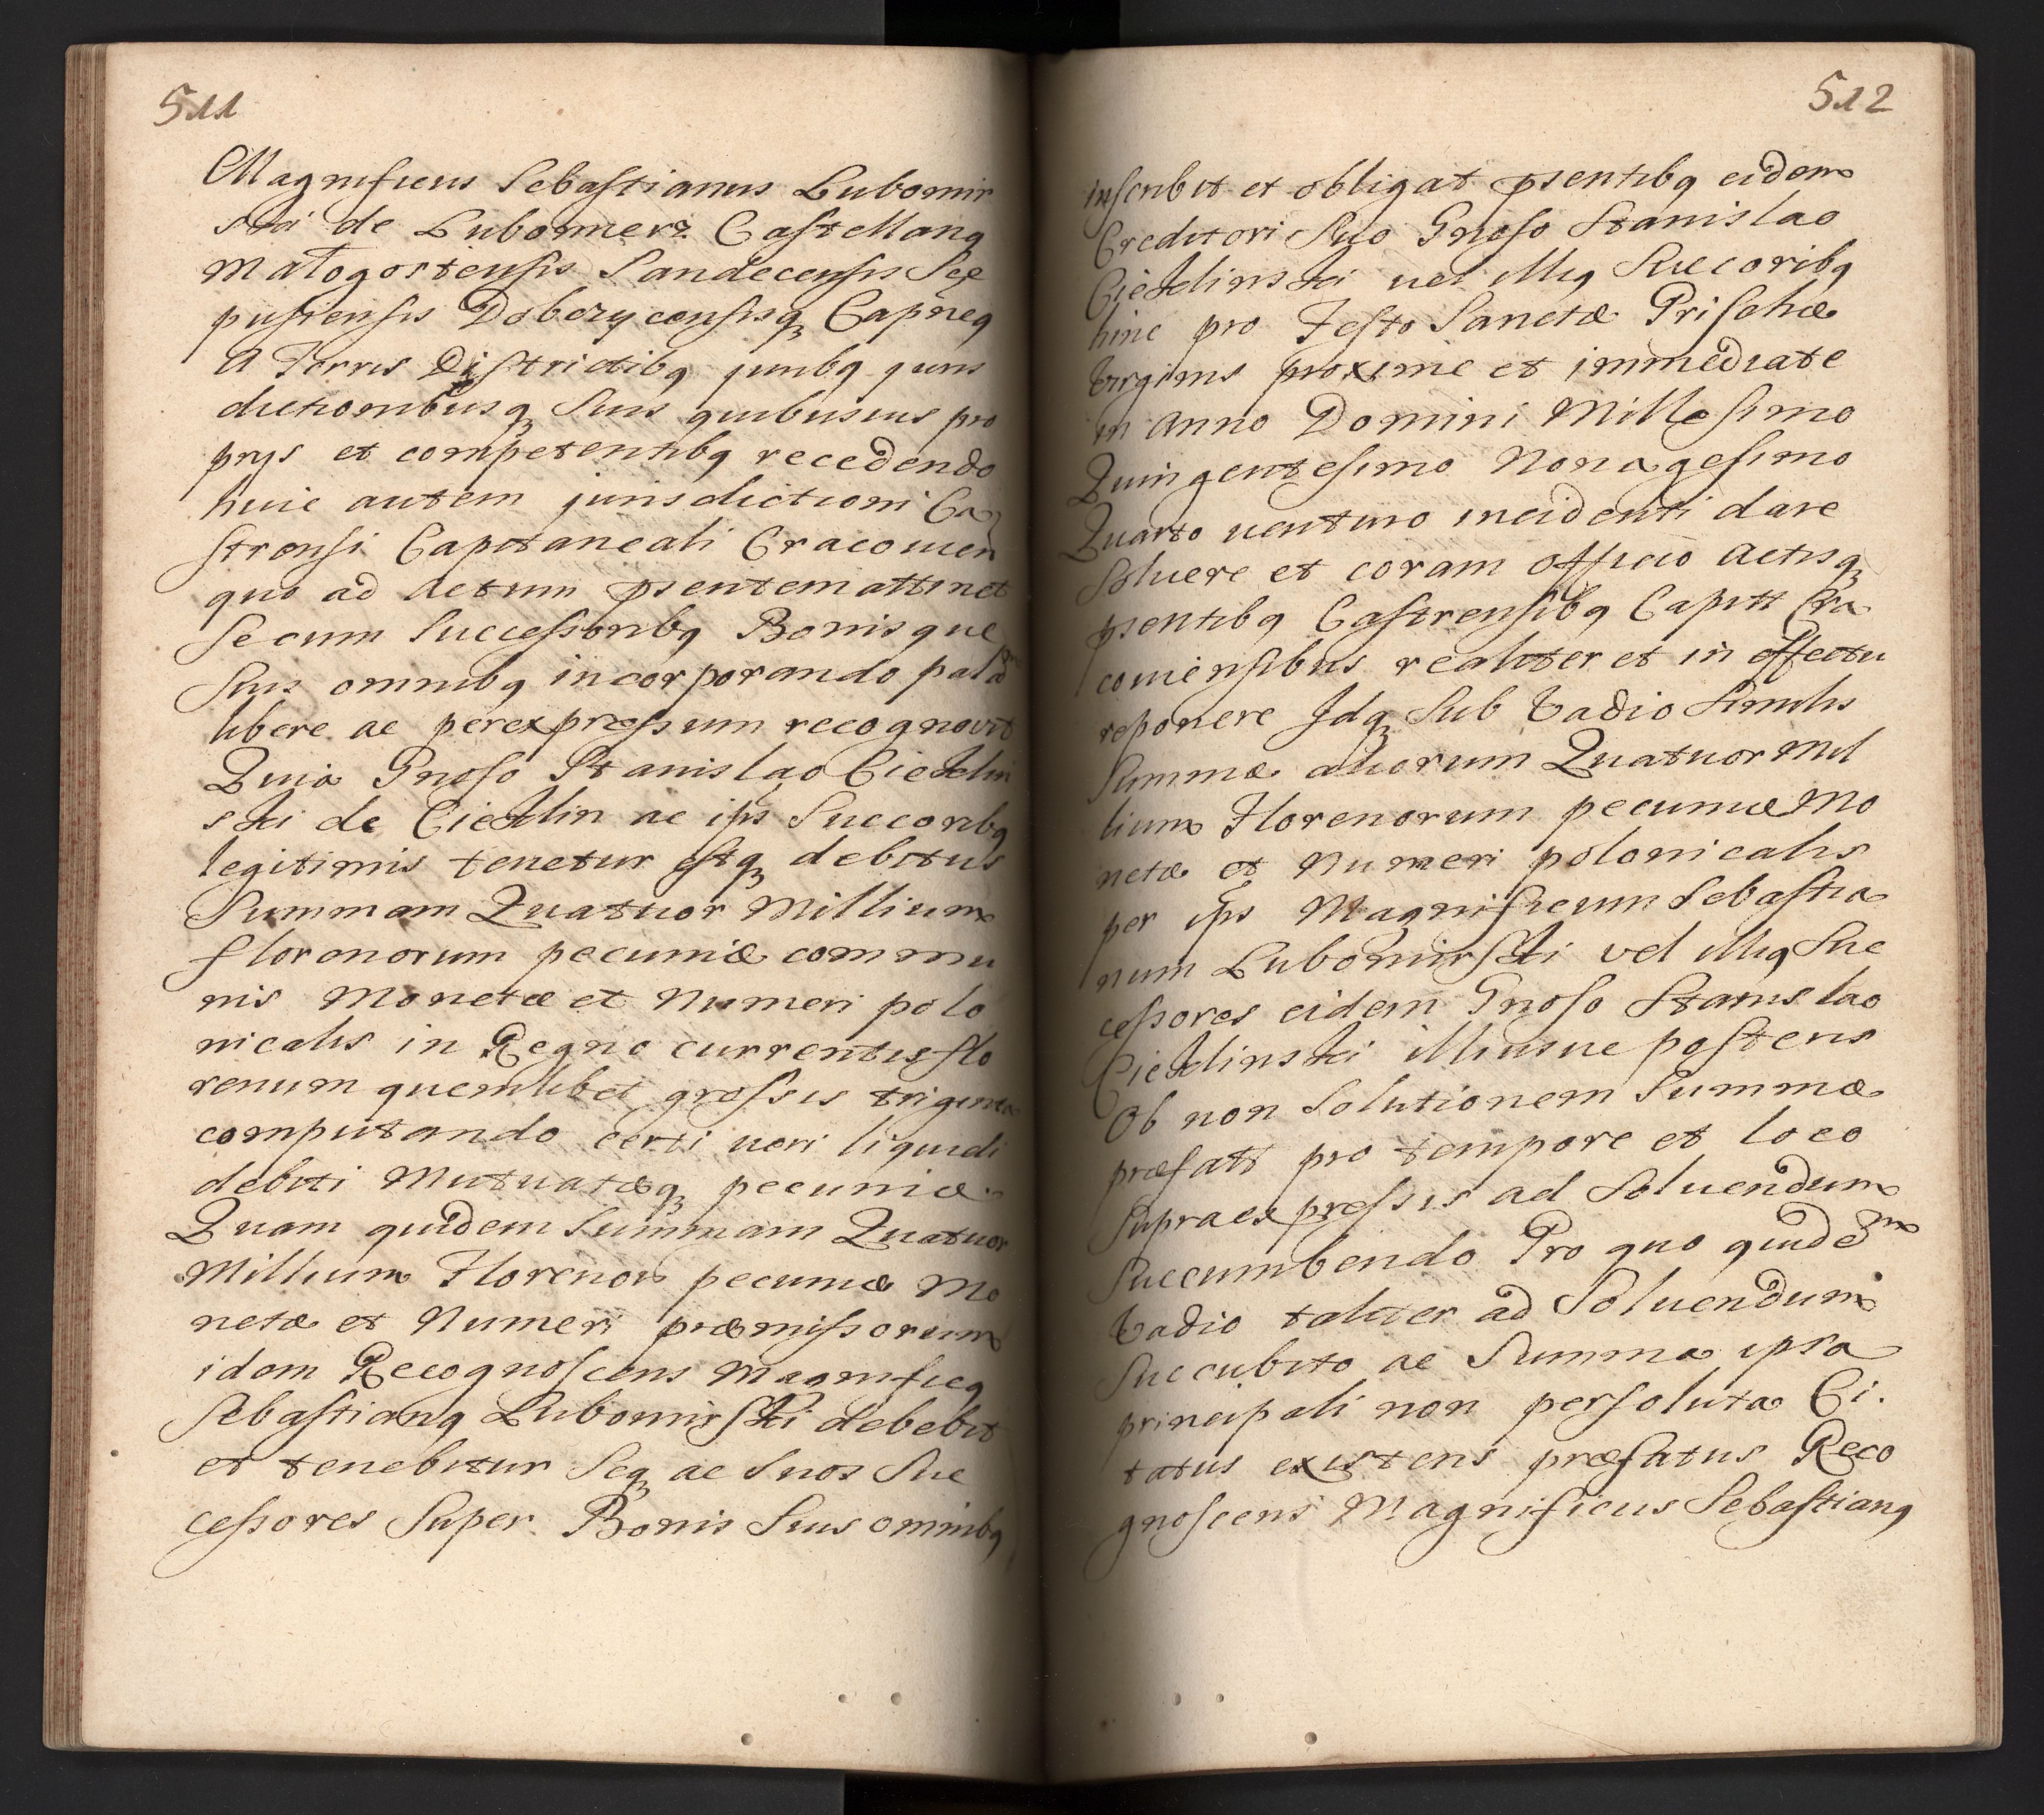 511
Magnificus Sebastianus Lubomir
ski de Lubomierz Castellanq
Małogostensis Sandecensis Sce
pusiensis Dobczycensisq Capneq
A Terris Districtibq juribq juris
dictionibusq Suis quibusuis pro
prys et competentibq recedendo
huic autem jurisdictioni Ca
strensi Capitaneali Cracouien
quo ad Actum psentem attinet
Se cum Successoribq Bonisque
Suis omnibq incorporando palam
libere ac perexpressum recognovit
Quia Gnoso Stanislao Cieklin
ski de Cieklin ac ips Succoribq
legitimis tenetur estq debitus
Summam Quatuor Millium
florenorum pecuniæ commu
nis Monetæ et Numeri polo
nicalis in Regno currentis flo
renum quemlibet grossis triginta
computando certi ueri liquidi
debiti Mutuatæq pecuniæ.
Quam quidem Summam Quatuor
Millium Florenor pecuniæ Mo
netæ et Numeri præmissorum
idem Recognoscens Magnificq
Sebastianq Lubomirski debebit
et tenebitur Seq ac Suos Suc
cessores Super Bonis Suis omnibq
512
inscribit et obligat psentibq eidem
Creditori Suo Gnoso Stanislao
Cieklinski uel illiq Succoribq
hinc pro Festo Sanctæ Prischæ
Virginis proxime et immediate
in Anno Domini Millesimo
Quingentesimo Nonagesimo
Quarto uenturo incidenti dare
Soluere et coram officio Actisq
psentibq Castrensibq Capitt Cra
couiensibus realiter et in effectu
reponere Idq Sub Vadio Similis
Summæ aliorum Quatuor Mil
lium Florenorum pecuniæ Mo
netæ et Numeri polonicalis
per ips Magnificum Sebastia
num Lubomirski vel illiq Suc
cessores eidem Gnoso Stanislao
Cieklinski illiusue posteris
Ob non Solutionem Summæ
præfatt pro tempore et loco
Supraexpressis ad Soluendum
Succumbendo Pro quo quidem
Vadio taliter ad Soluendum
Succubito ac Summa ipsa
principali non persoluta Ci.
tatus existens præfatus Reco
gnoscens Magnificus Sebastianq